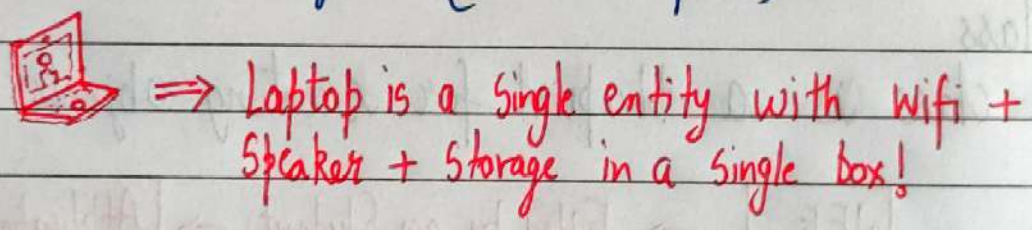 ⇒ Laptop is a single entity with wifi +
Speaker + Storage in a single box!